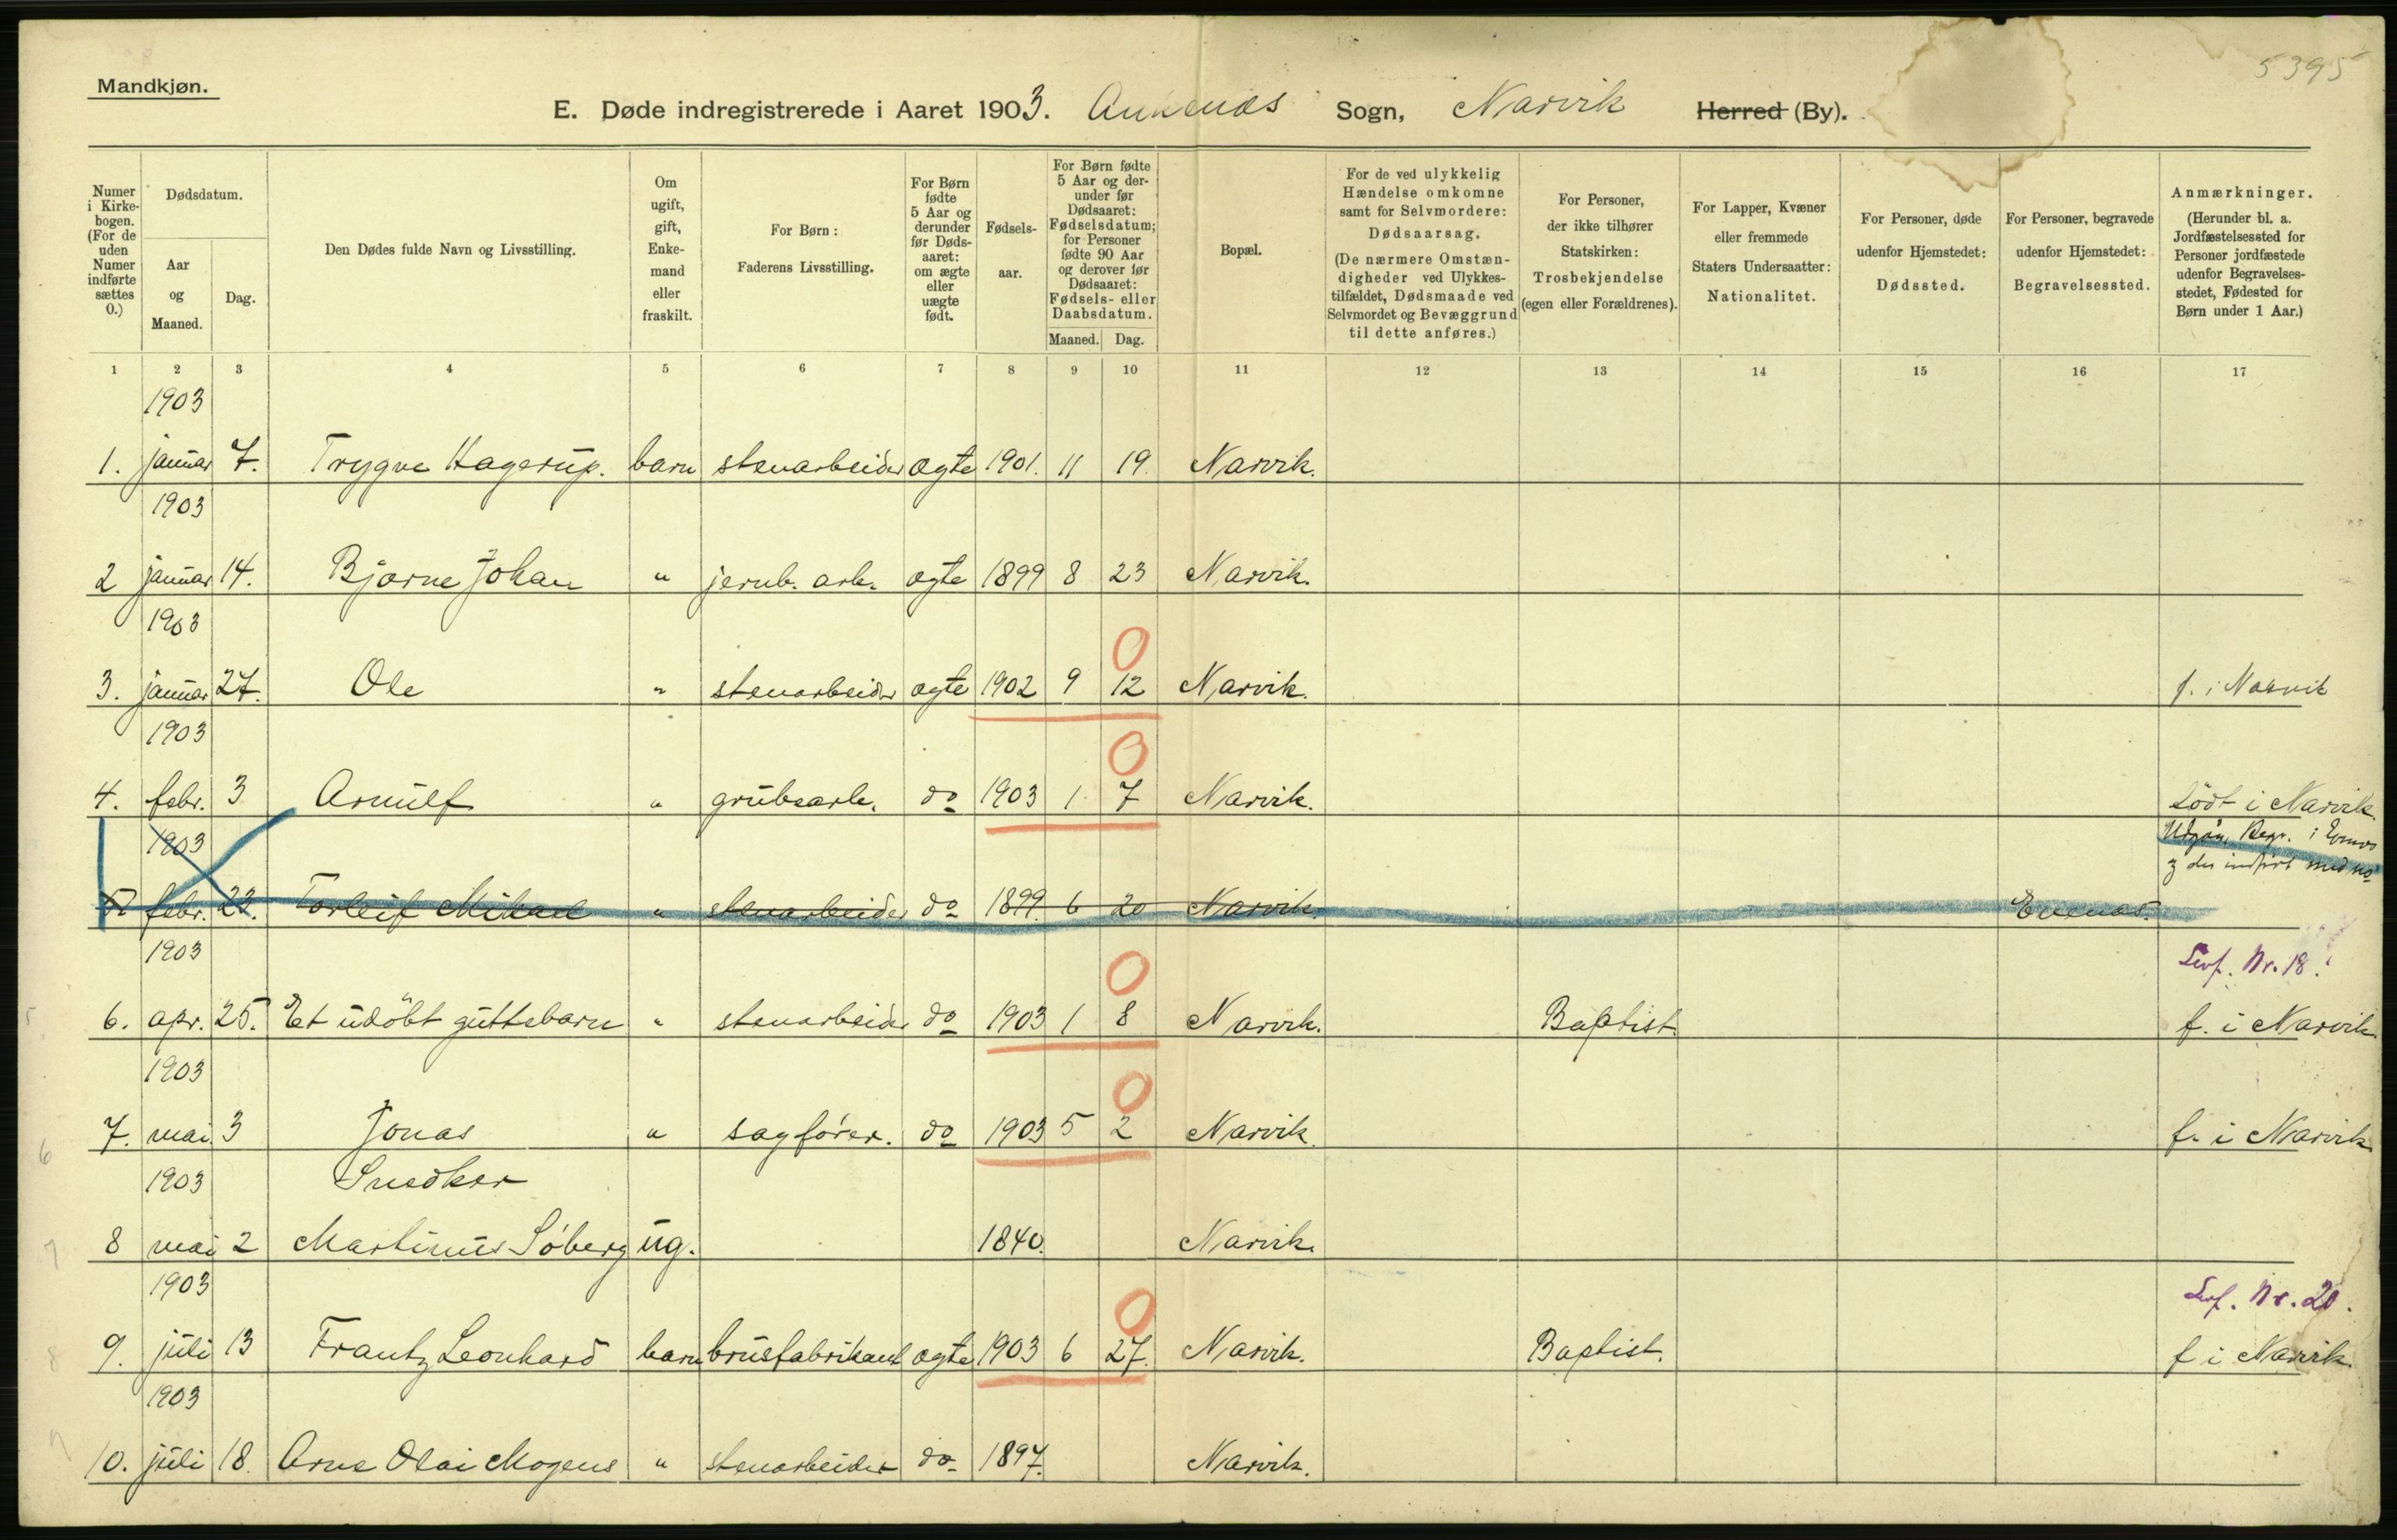 5395
Mandkjøn.
E. Døde indregistrerede i Aaret 1903. Ankenæs Sogn, Narvik Herred (By).
Numer i Kirkebogen. (For de uden Numer indførte sættes 0.)
Dødsdatum.
Aar og Maaned.
Dag.
Den Dødes fulde Navn og Livsstilling.
Om ugift, gift, Enkemand eller fraskilt.
For Børn: Faderens Livsstilling.
For Børn fødte 5 Aar og derunder før Dødsaaret: om ægte eller uægte født.
Fødselsaar.
For Børn fødte 5 Aar og derunder før Dødsaaret: Fødselsdatum; for Personer fødte 90 Aar og derover før Dødsaaret: Fødsels- eller Daabsdatum.
Maaned. Dag.
Bopæl.
For de ved ulykkelig Hændelse omkomne samt for Selvmordere: Dødsaarsag. (De nærmere Omstændigheder ved Ulykkestilfældet, Dødsmaade ved Selvmordet og Bevæggrund til dette anføres.)
For Personer, der ikke tilhører Statskirken: Trosbekjendelse (egen eller Forældrenes).
For Lapper, Kvæner eller fremmede Staters Undersaatter: Nationalitet.
For Personer, døde udenfor Hjemstedet: Dødssted.
For Personer, begravede udenfor Hjemstedet: Begravelsessted.
Anmærkninger. (Herunder bl. a. Jordfæstelsessted for Personer jordfæstede udenfor Begravelsesstedet, Fødested for Børn under 1 Aar.)
1 2 3 4 5 6 7 8 9 10 11 12 13 14 15 16 17
1903
1. januar 7. Trygve Hagerup. barn stenarbeider ægte 1901. 11 19. Narvik.
1903
2 januar 14. Bjarne Johan " jernb. arb. ægte 1899 8 23 Narvik.
1903
0
3. januar 27. Ole " stenarbeider ægte 1902 9 12 Narvik. f. i Narvik
1903
0
4. febr. 3 Arnulf " grubearb. do 1903 1 7 Narvik. Födt i Narvik.
1903 Udgår, Begr. i Evenes
og der indført med no
5 febr. 22. Torleif Mikael " stenarbeider do 1899. 6 20 Narvik. Evenæs.
1903 Levf. Nr. 18.
0
6. apr. 25. Et udöbt guttebarn " stenarbeider do 1903 1 8 Narvik. Baptist. f. i Narvik
1903
0
7. mai 3 Jonas " sagfører. do 1903 5 2 Narvik. f. i Narvik
1903 Snedker
8 mai 2 Martinus Söberg ug. 1840. Narvik.
1903 Levf. Nr. 20.
0
9. juli 13 Frantz Leonhard barn brusfabrikant ægte 1903 6 27. Narvik. Baptist. f i Narvik.
1903
10. juli 18. Arne Olai Mogens " stenarbeider do 1897. Narvik.
5
6
7
8
9